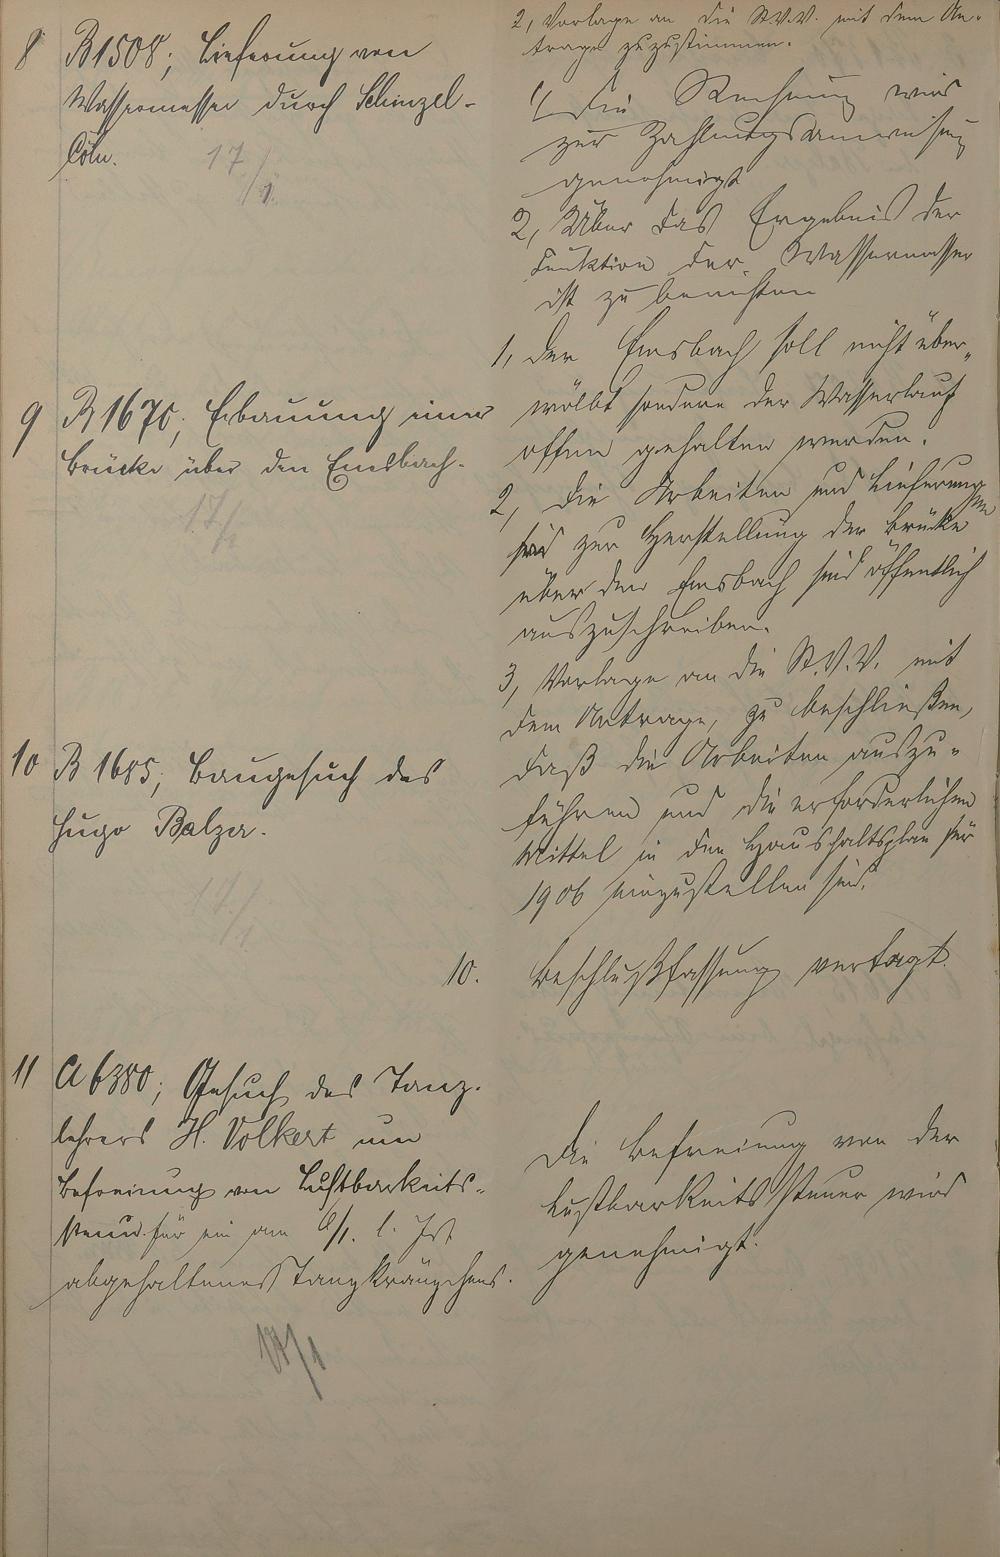 2, Vorlage an die St.V.V. mit dem An-
trage zuzustimmen.
8 B 1508; Lieferung von
Wassermesser durch Schinzel-
Cöln.
17/1.
1, Die Rechnung wird
zur Zahlungsanweisung
genehmigt
2, Über das Ergebnis der
Funktion der Wassermesser
ist zu berichten
9 B 1670; Erbauung einer
Brücke über den Emsbach.
17/1
1, Der Emsbach soll nicht über„
wölbt sondern der Wasserlauf
offen gehalten werden.
2, Die Arbeiten und Lieferungen
sind zur Herstellung der Brücke
über den Emsbach sind öffentlich
auszuschreiben.
3, Vorlage an die St.V.V. mit
dem Antrage, zu beschließen,
daß die Arbeiten auszu-
führen und die erforderlichen
Mittel in den Haushaltsplan für
1906 einzustellen sind.
10 B 1685; Baugesuch des
Hugo Balzer.
17/1
10. Beschlußfassung vertagt.
11 A 6380; Gesuch des Tanz-
lehrers H. Volkert um
Befreiung von Lustbarkeits-
steuer für ein am 6/1. l. Jrs
abgehaltenes Tanzkränzchens.
17/1
Die Befreiung von der
Lustbarkeitssteuer wird
genehmigt.